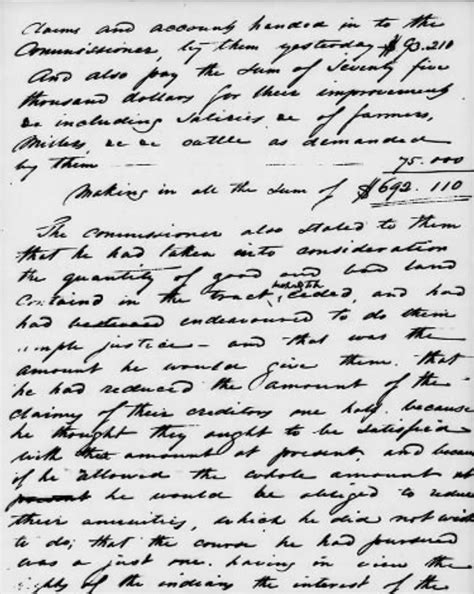 Claims and accounts handed in to the
Commissioner, by them yesterday $93.210
And also pay the sum of Seventy five
thousand dollars for their improvements
&c including Saliries &c of farmers,
Millers, &c &c cattle as demanded
by them 75.000
Making in all the sum of $692.110
The commissioner also stated to them
that he had taken into consideration
the quantity of good and bad land
Containd in the tract ceded, and had
had endeavoured to do them
ample justice – and that was the
amount he would give them. that
he had reduced the amount of the
claims of their creditors one half. because
he thought they ought to be satisfied
with that amount at present, and because
if he allowed the whole amount
he would be obliged to reduce
their annuities, which he did not wish
to do, that the course he had pursued
was a just one. having in view the
rights of the indians the interest of the